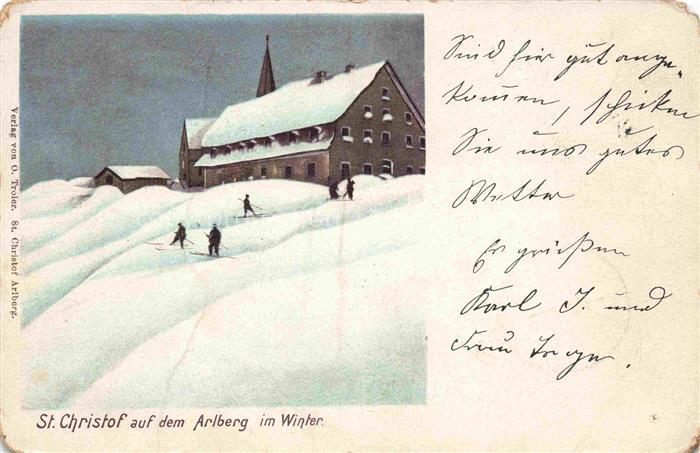 Sind hier gut ange-
kommen, schicken
Sie uns gutes
Wetter
Es grüßen
Karl J. und
Frau
Verlag von O. Troler. St. Christof Arlberg.
St. Christof auf dem Arlberg im Winter.